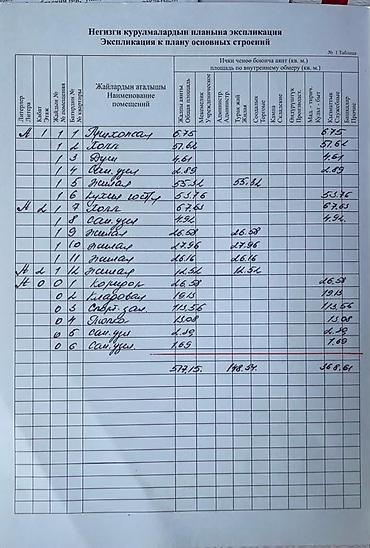 Негизги курулмалардын планына экспликация
Экспликация к плану основных строений
№ 1 Таблица
Литерлор Литера
Кабат Этаж
Жайдын № № помещения
Батирдин № № квартиры
Жайлардын аталышы Наименование помещений
Ички ченөө боюнча аянт (кв. м.)
площадь по внутреннему обмеру (кв. м.)
Жалпы аянты Общая площадь
Мекемелик Учрежденческие
Администр. Администр.
Турак жай Жилая
Соодалык Торговые
Кампа Складские
Өндүрүштүк Производст.
Мад. - тирич. Культ. - быт.
Кызматтык Служебные
Башкалар Прочие
А 1 1 1 Прихожая 6.75 6.75
1 2 Холл 51.62 51.62
1 3 Душ 4.61 4.61
1 4 Сан.узл 2.89 2.89
1 5 Жилая 55.32 55.32
1 6 Кухня 53.76 53.76
А 2 1 7 Холл 67.63 67.63
1 8 Сан.узл 4.92 4.92
1 9 Жилая 26.58 26.58
1 10 Жилая 27.96 27.96
1 11 Жилая 26.16 26.16
А 2 1 12 Жилая 12.52 12.52
А 0 0 1 Коридор 26.58 26.58
0 2 Кладовая 19.13 19.13
0 3 Спорт.зал. 113.56 113.56
0 4 Топка 13.08 13.08
0 5 Сан.узл 2.39 2.39
0 6 Сан.узл. 1.69 1.69
517.15. 148.54. 368.61